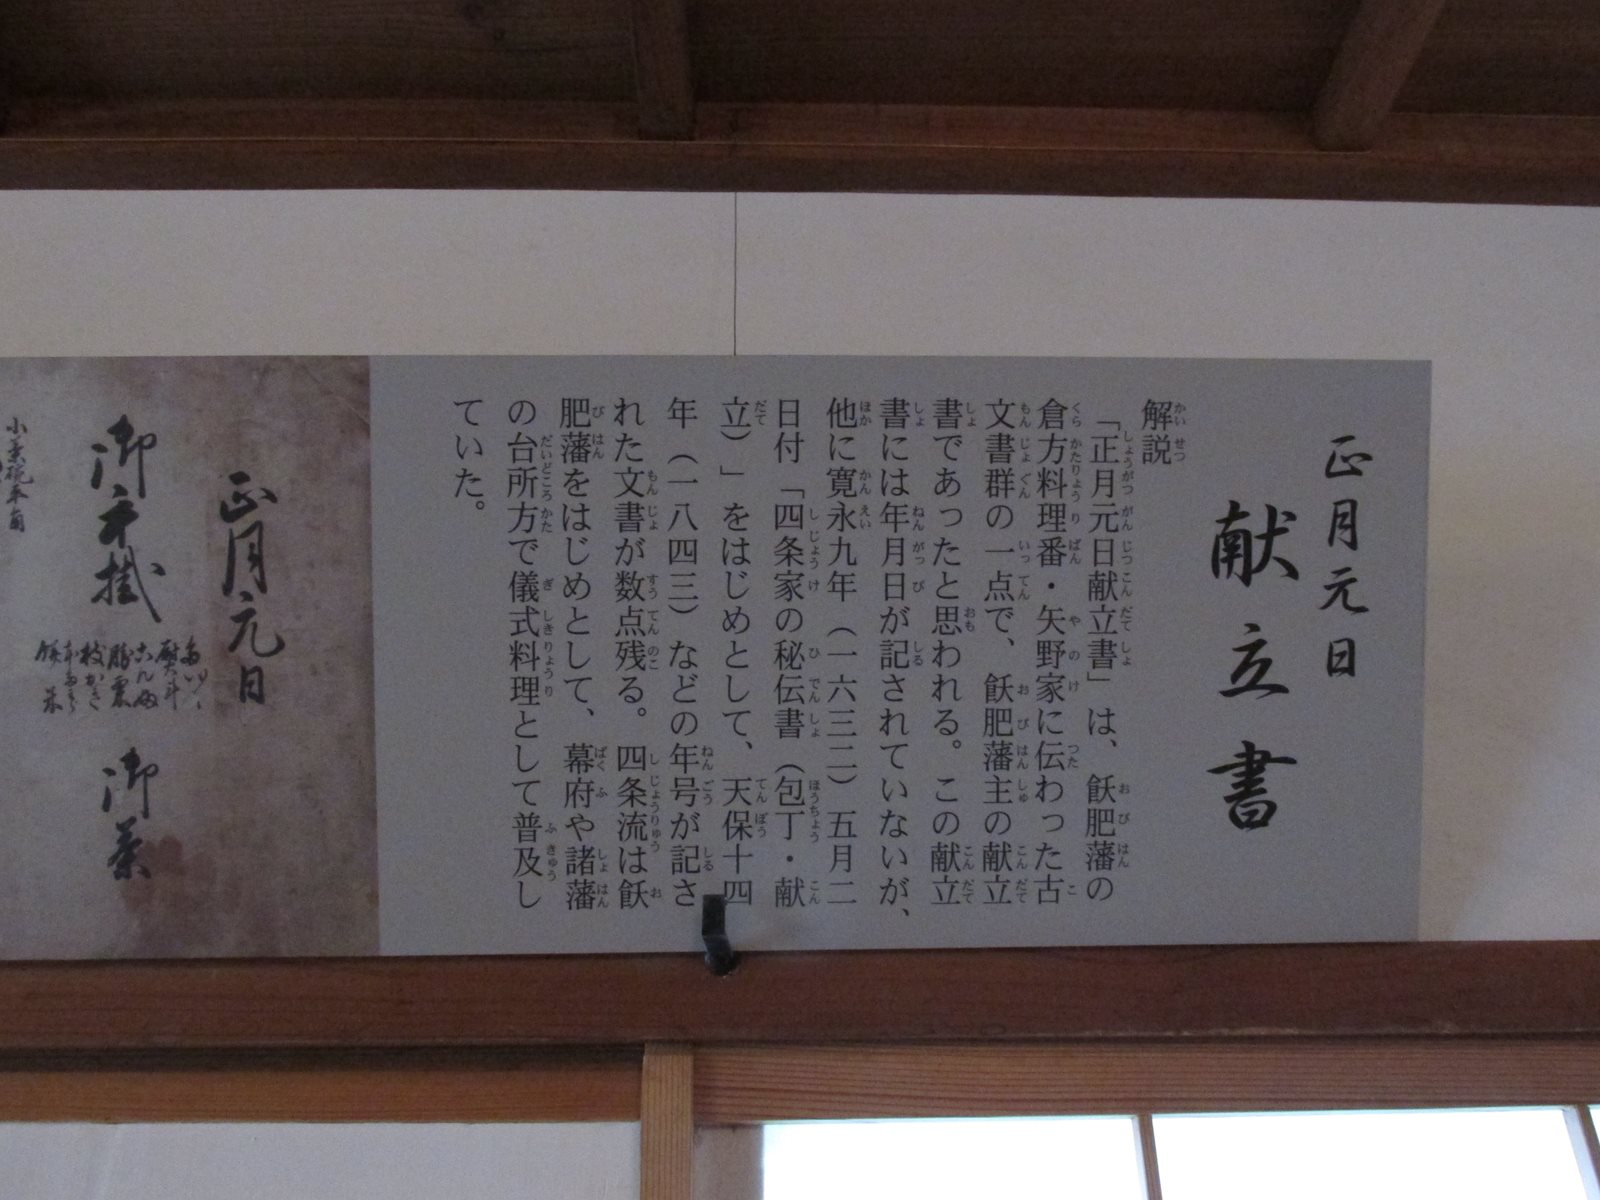 正月元日
献立書
解説
「正月元日献立書」は、飫肥藩の
倉方料理番・矢野家に伝わった古
文書群の一点で、飫肥藩主の献立
書であったと思われる。この献立
書には年月日が記されていないが、
他に寛永九年（一六三二）五月二
日付「四条家の秘伝書（包丁・献
立）」をはじめとして、天保十四
年（一八四三）などの年号が記さ
れた文書が数点残る。四条流は飫
肥藩をはじめとして、幕府や諸藩
の台所方で儀式料理として普及し
ていた。
正月元日
御手掛
御茶